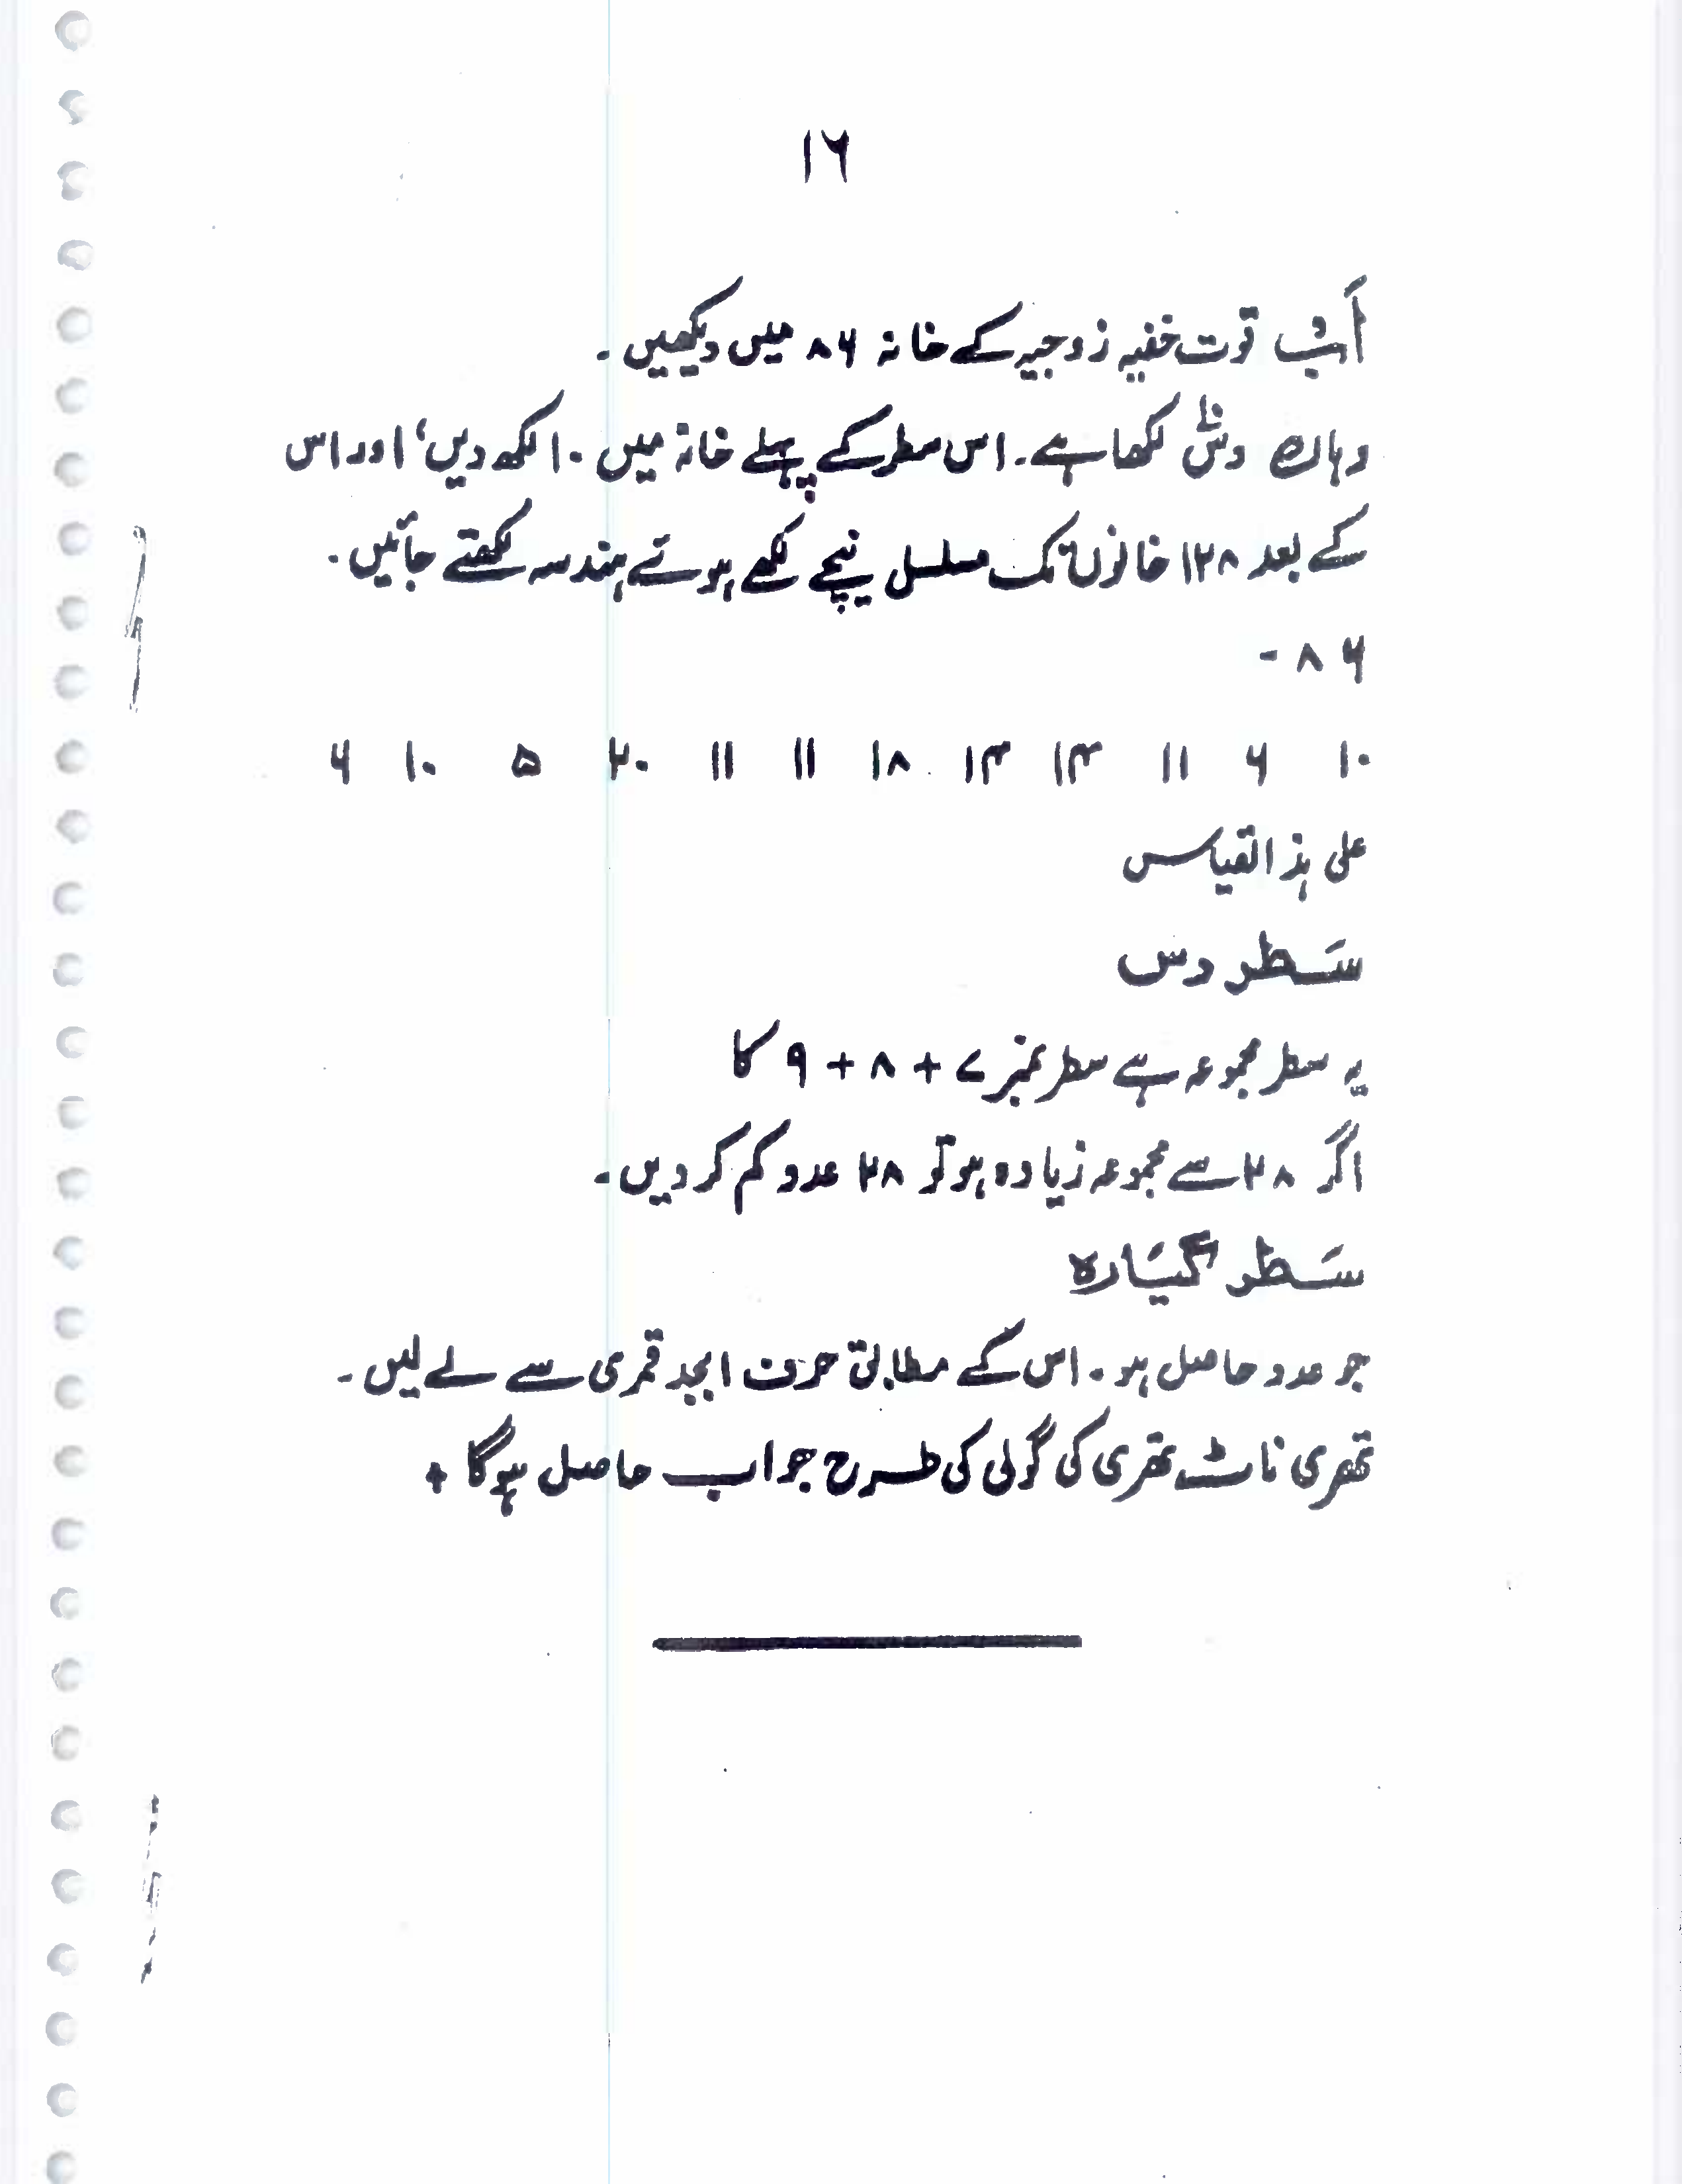 ۱۶
اَبْ قوت خفیہ زوجیہ کے خانہ ۸۶ میں دیکھیں۔
وہاں دسؔ لکھا ہے۔ اس سطر کے پہلے خانہ میں ۱۰ لکھ دیں، اور اس
کے بعد ۱۲۸ خانوں تک مسلسل نیچے لکھے ہوئے ہندسہ لکھتے جائیں۔
۸۶ -
۱۰ ۶ ۱۱ ۱۴ ۱۴ ۱۸ ۱۱ ۱۱ ۲۰ ۵ ۱۰ ۶
علی ہذا القیاس
سَطر دس
یہ سطر مجموعہ ہے سطر نمبر ۷ + ۸ + ۹ کا
اگر ۲۸ سے مجموعہ زیادہ ہو تو ۲۸ عدد کم کر دیں۔
سَطر گیَارہ
جو عدد حاصل ہو۔ اس کے مطابق حرف ابجد قمری سے لے لیں۔
تھری ناٹ تھری کی گولی کی طرح جواب حاصل ہوگا +